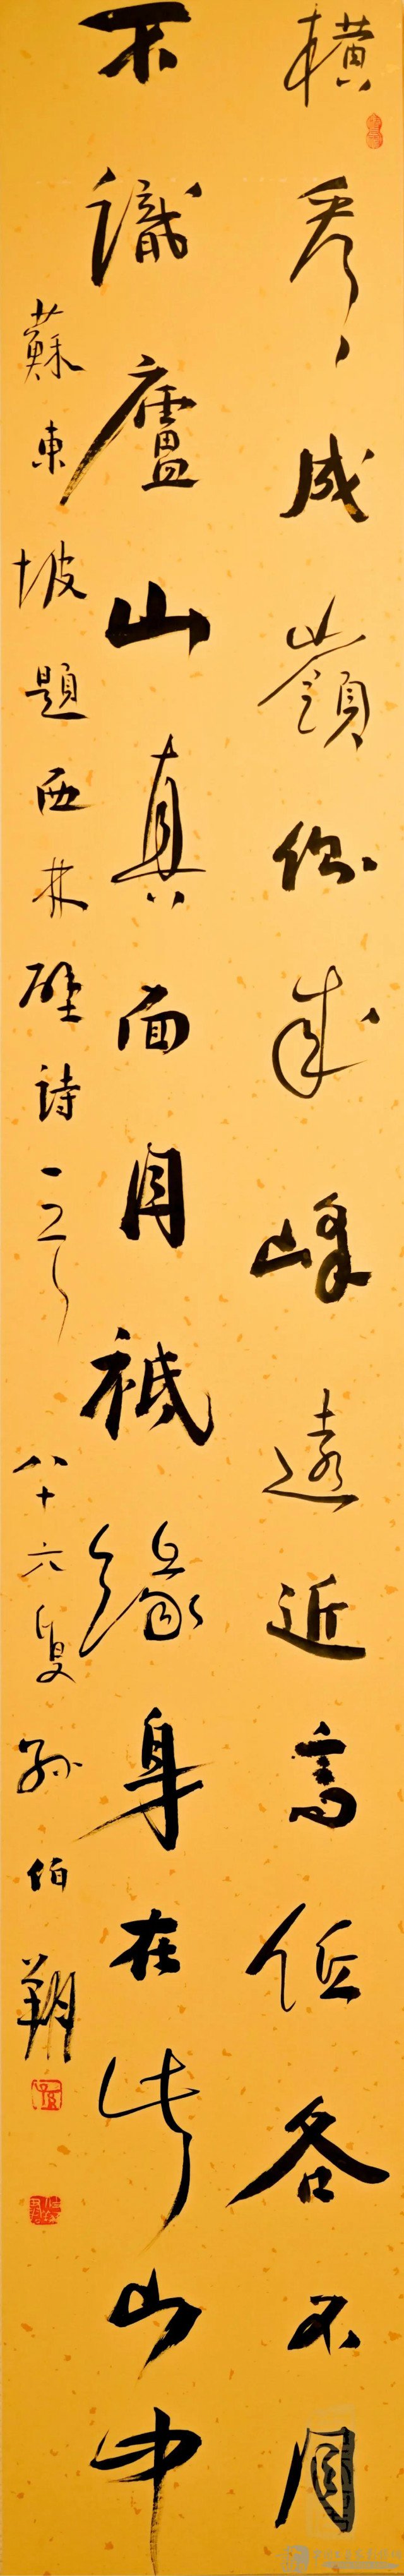 橫看成嶺側成峰遠近高低各不同
不識廬山真面目祗緣身在此山中
蘇東坡題西林壁詩一首 八十六叟孫伯翔